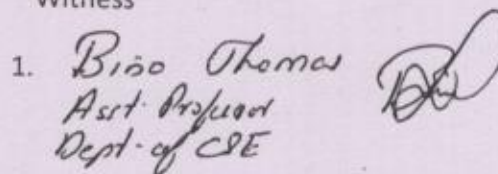 Witness
1. Bino Thomas
Asst. Professor
Dept. of CSE